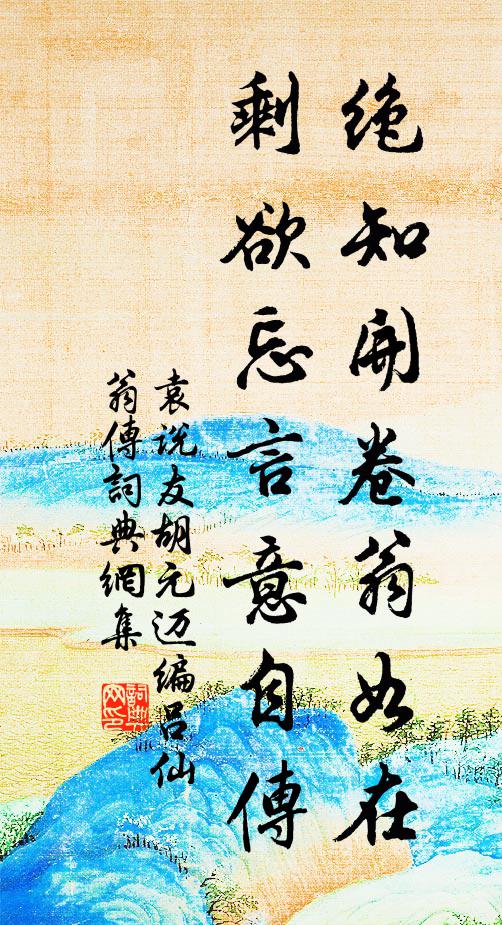 绝知开卷翁如在
剩欲忘言意自傳
袁说友胡元迈编吕仙
翁傳詞典網集